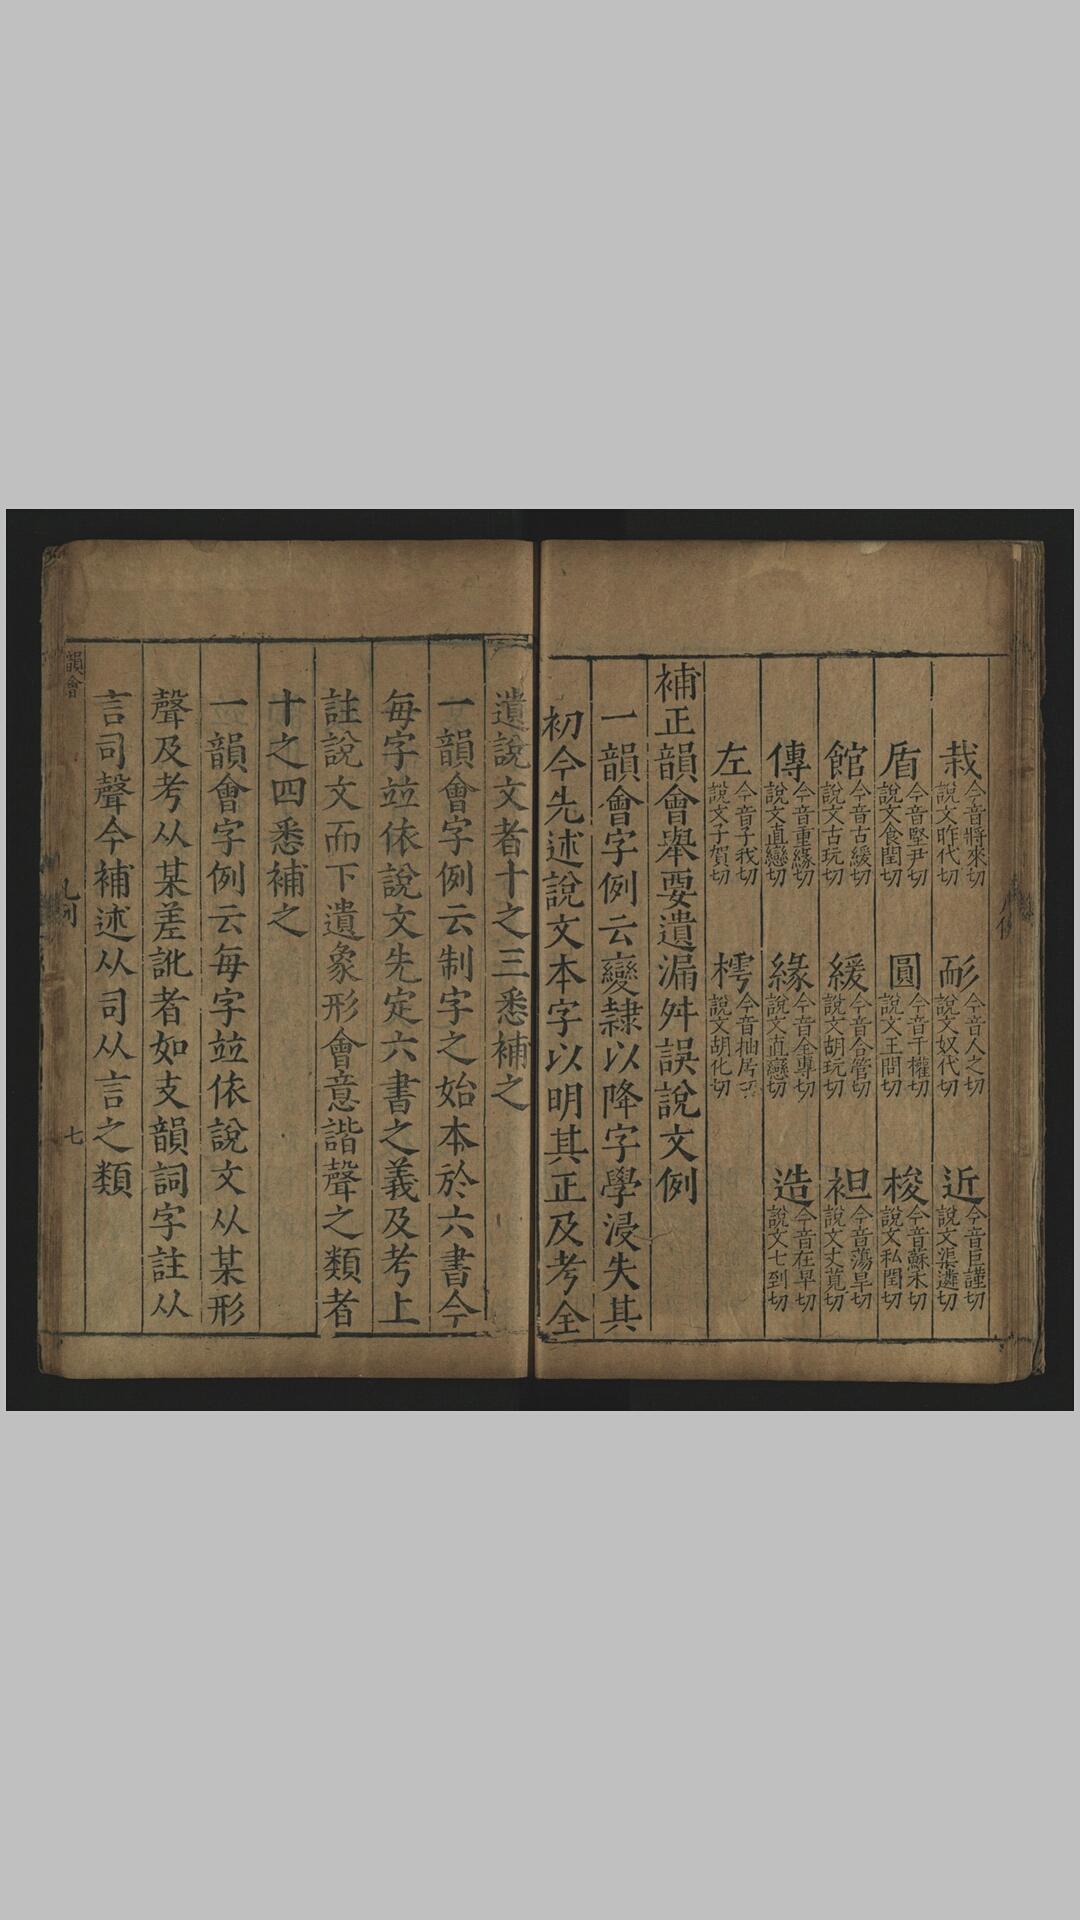 栽今音將來切說文昨代切 耏今音人之切說文奴代切 近今音巨謹切說文渠遴切
盾今音堅尹切說文食閏切 圓今音于權切說文王問切 梭今音蘇禾切說文私閏切
館今音古緩切說文古玩切 緩今音合管切說文胡玩切 袒今音蕩旱切說文丈莧切
傳今音重緣切說文直戀切 緣今音全專切說文直戀切 造今音在早切說文七到切
左今音子我切說文子賀切 樗今音抽居切說文胡化切
補正韻會舉要遺漏舛誤說文例
一韻會字例云變隸以降字學浸失其
初今先述說文本字以明其正及考全
遺說文者十之三悉補之
一韻會字例云制字之始本於六書今
每字竝依說文先定六書之義及考上
註說文而下遺象形會意諧聲之類者
十之四悉補之
一韻會字例云每字竝依說文从某形
聲及考从某差訛者如支韻詞字註从
言司聲今補述从司从言之類
韻會
凡例
七